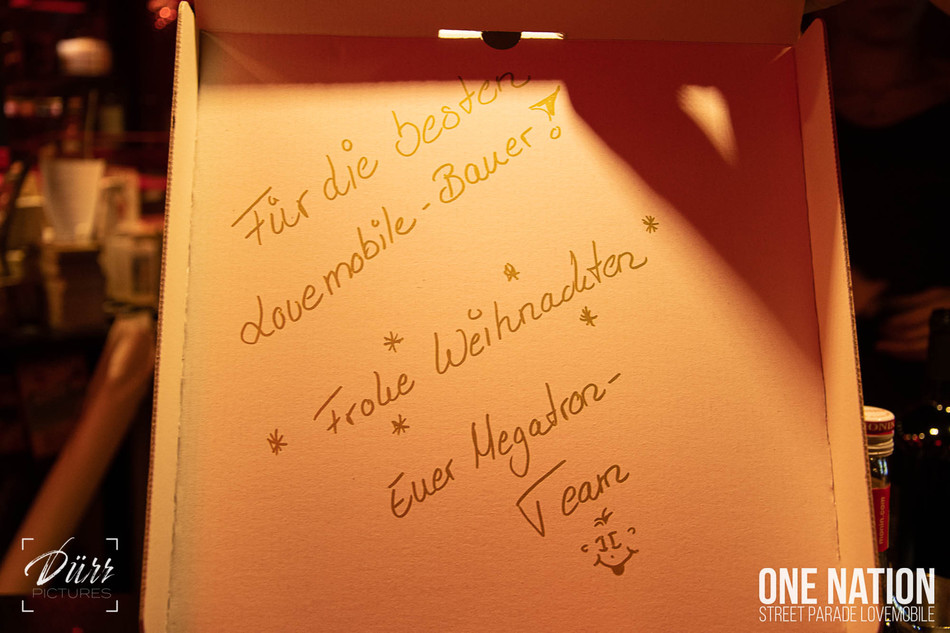 Für die besten
Lovemobile-Bauer!
Frohe Weihnachten
Euer Megatron-
Team
Dürr
PICTURES
ONE NATION
STREET PARADE LOVEMOBILE